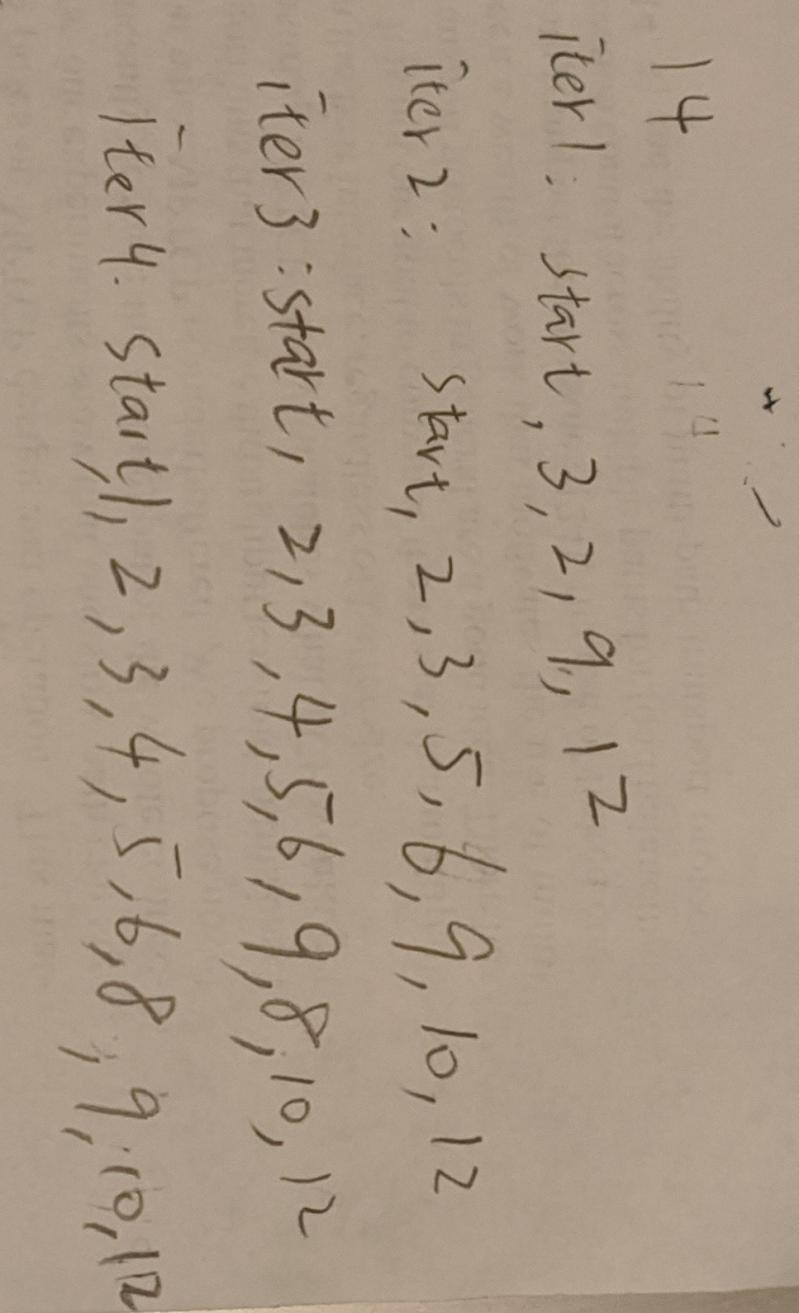 14
iter1: start, 3, 2, 9, 12
iter2: start, 2, 3, 5, 6, 9, 10, 12
iter3: start, 2, 3, 4, 5, 6, 9, 8, 10, 12
iter4: start, 1, 2, 3, 4, 5, 6, 8, 9, 10, 12